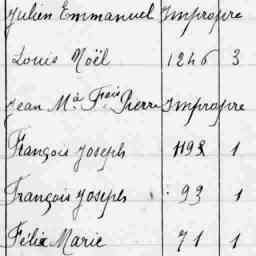 Julien Emmanuel Impropre
Louis Noël 1246 3
Jean Mª Fçois Pierre Impropre
François Joseph 1193 1
François Joseph 93 1
Félix Marie 71 1